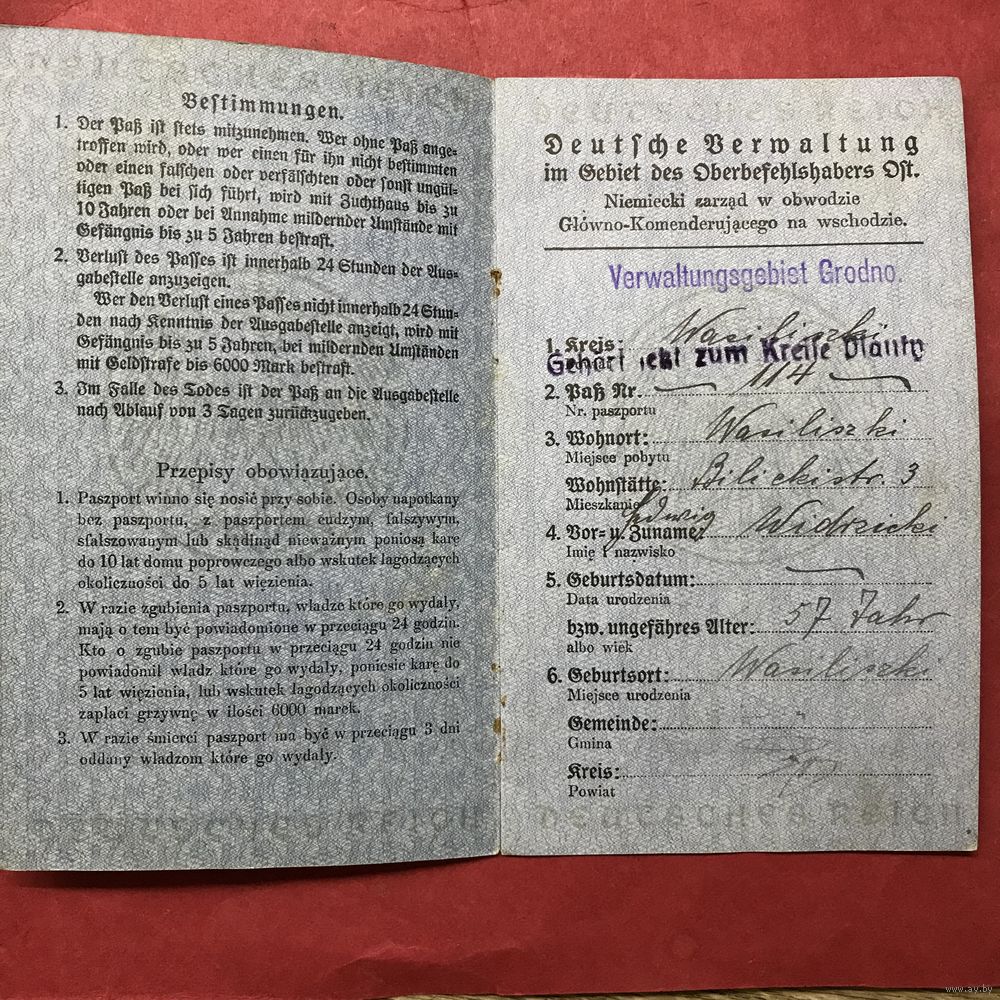 Bestimmungen.
1. Der Paß ist stets mitzunehmen. Wer ohne Paß ange-
troffen wird, oder wer einen für ihn nicht bestimmten
oder einen falschen oder verfälschten oder sonst ungül-
tigen Paß bei sich führt, wird mit Zuchthaus bis zu
10 Jahren oder bei Annahme mildernder Umstände mit
Gefängnis bis zu 5 Jahren bestraft.
2. Verlust des Passes ist innerhalb 24 Stunden der Aus-
gabestelle anzuzeigen.
Wer den Verlust eines Passes nicht innerhalb 24 Stun-
den nach Kenntnis der Ausgabestelle anzeigt, wird mit
Gefängnis bis zu 5 Jahren, bei mildernden Umständen
mit Geldstrafe bis 6000 Mark bestraft.
3. Im Falle des Todes ist der Paß an die Ausgabestelle
nach Ablauf von 3 Tagen zurückzugeben.
Przepisy obowiązujące.
1. Paszport winno się nosić przy sobie. Osoby napotkany
bez paszportu, z paszportem cudzym, fałszywym,
sfałszowanym lub skądinąd nieważnym poniosą karę
do 10 lat domu poprawczego albo wskutek łagodzących
okoliczności do 5 lat więzienia.
2. W razie zgubienia paszportu, władze które go wydały,
mają o tem być powiadomione w przeciągu 24 godzin.
Kto o zgubie paszportu w przeciągu 24 godzin nie
powiadomił władz które go wydały, poniesie karę do
5 lat więzienia, lub wskutek łagodzących okoliczności
zapłaci grzywnę w ilości 6000 marek.
3. W razie śmierci paszport ma być w przeciągu 3 dni
oddany władzom które go wydały.
Deutsche Verwaltung
im Gebiet des Oberbefehlshabers Ost.
Niemiecki zarząd w obwodzie
Główno-Komenderującego na wschodzie.
Verwaltungsgebiet Grodno.
1. Kreis: Wasiliszki
Gehört jetzt zum Kreise
2. Paß Nr. 114
Nr. paszportu
3. Wohnort: Wasiliszki
Miejsce pobytu
Wohnstätte: Bilickistr. 3
Mieszkanie
4. Vor- u. Zuname: Ludwig Widrzicki
Imię i nazwisko
5. Geburtsdatum:
Data urodzenia
bzw. ungefähres Alter: 57 Jahr
albo wiek
6. Geburtsort: Wasiliszki
Miejsce urodzenia
Gemeinde: "
Gmina
Kreis:
Powiat
DEUTSCHES REICH
www.ay.by